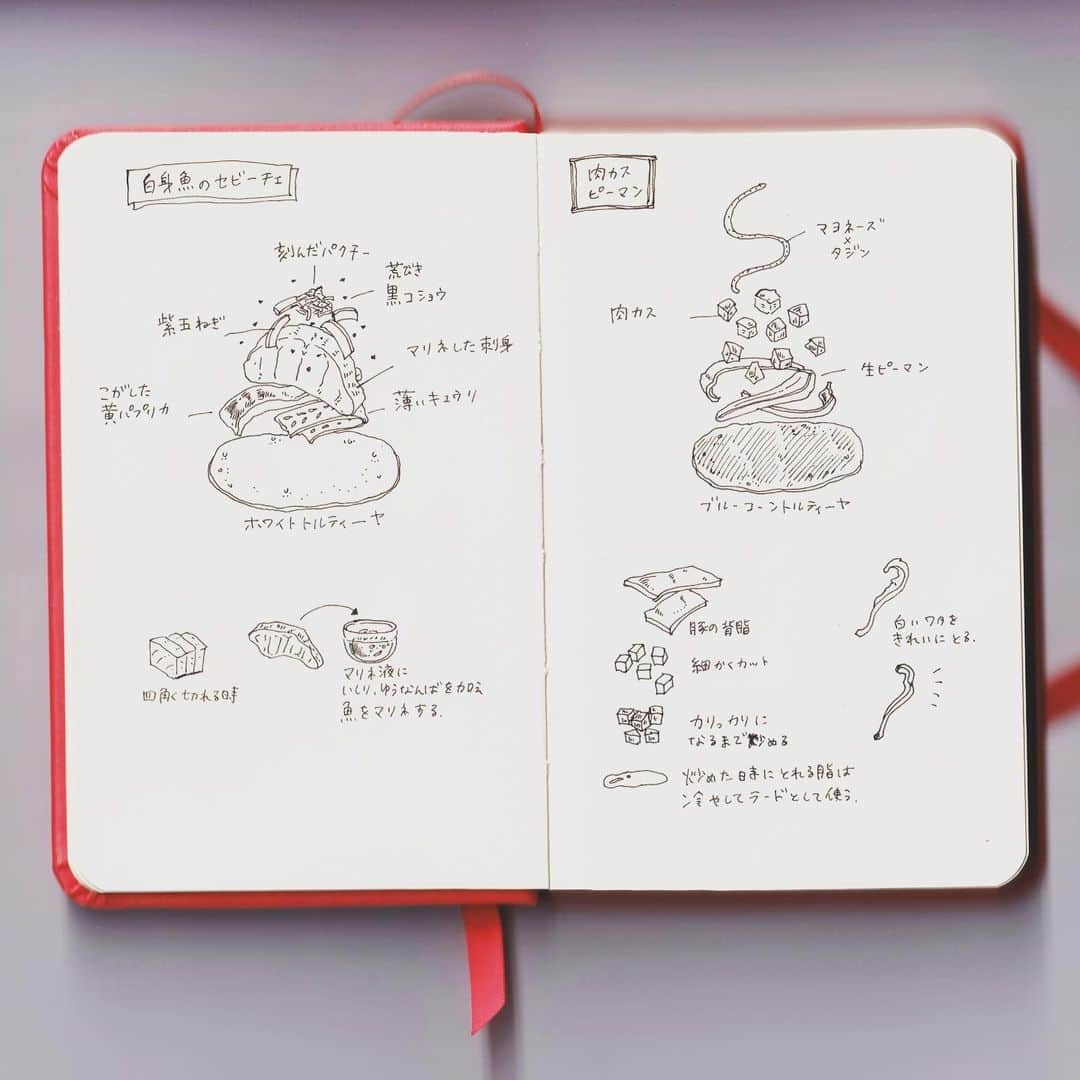 白身魚のセビーチェ
刻んだパクチー
荒びき
黒コショウ
紫玉ねぎ
マリネした刺身
こがした
黄パプリカ
薄いキュウリ
ホワイトトルティーヤ
四角く切れる時
マリネ液に
いしり、ゆうなんばを加え
魚をマリネする.
肉カス
ピーマン
マヨネーズ
×
タジン
肉カス
生ピーマン
ブルーコーントルティーヤ
豚の背脂
細かくカット
カリッカリに
なるまで炒める
炒めた時にとれる脂は
冷やしてラードとして使う.
白いワタを
きれいにとる.